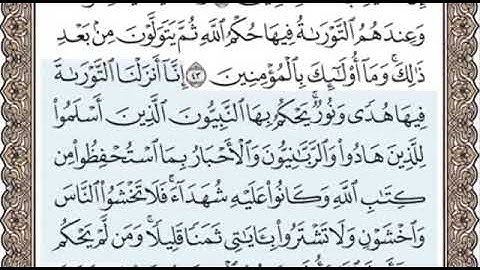 وَعِندَهُمُ ٱلتَّوْرَىٰةُ فِيهَا حُكْمُ ٱللَّهِ ثُمَّ يَتَوَلَّوْنَ مِنۢ بَعْدِ
ذَٰلِكَ ۚ وَمَآ أُو۟لَـٰٓئِكَ بِٱلْمُؤْمِنِينَ ٤٣ إِنَّآ أَنزَلْنَا ٱلتَّوْرَىٰةَ
فِيهَا هُدًى وَنُورٌ ۚ يَحْكُمُ بِهَا ٱلنَّبِيُّونَ ٱلَّذِينَ أَسْلَمُوا۟
لِلَّذِينَ هَادُوا۟ وَٱلرَّبَّـٰنِيُّونَ وَٱلْأَحْبَارُ بِمَا ٱسْتُحْفِظُوا۟ مِن
كِتَـٰبِ ٱللَّهِ وَكَانُوا۟ عَلَيْهِ شُهَدَآءَ ۚ فَلَا تَخْشَوُا۟ ٱلنَّاسَ
وَٱخْشَوْنِ وَلَا تَشْتَرُوا۟ بِـَٔايَـٰتِى ثَمَنًا قَلِيلًا ۚ وَمَن لَّمْ يَحْكُم